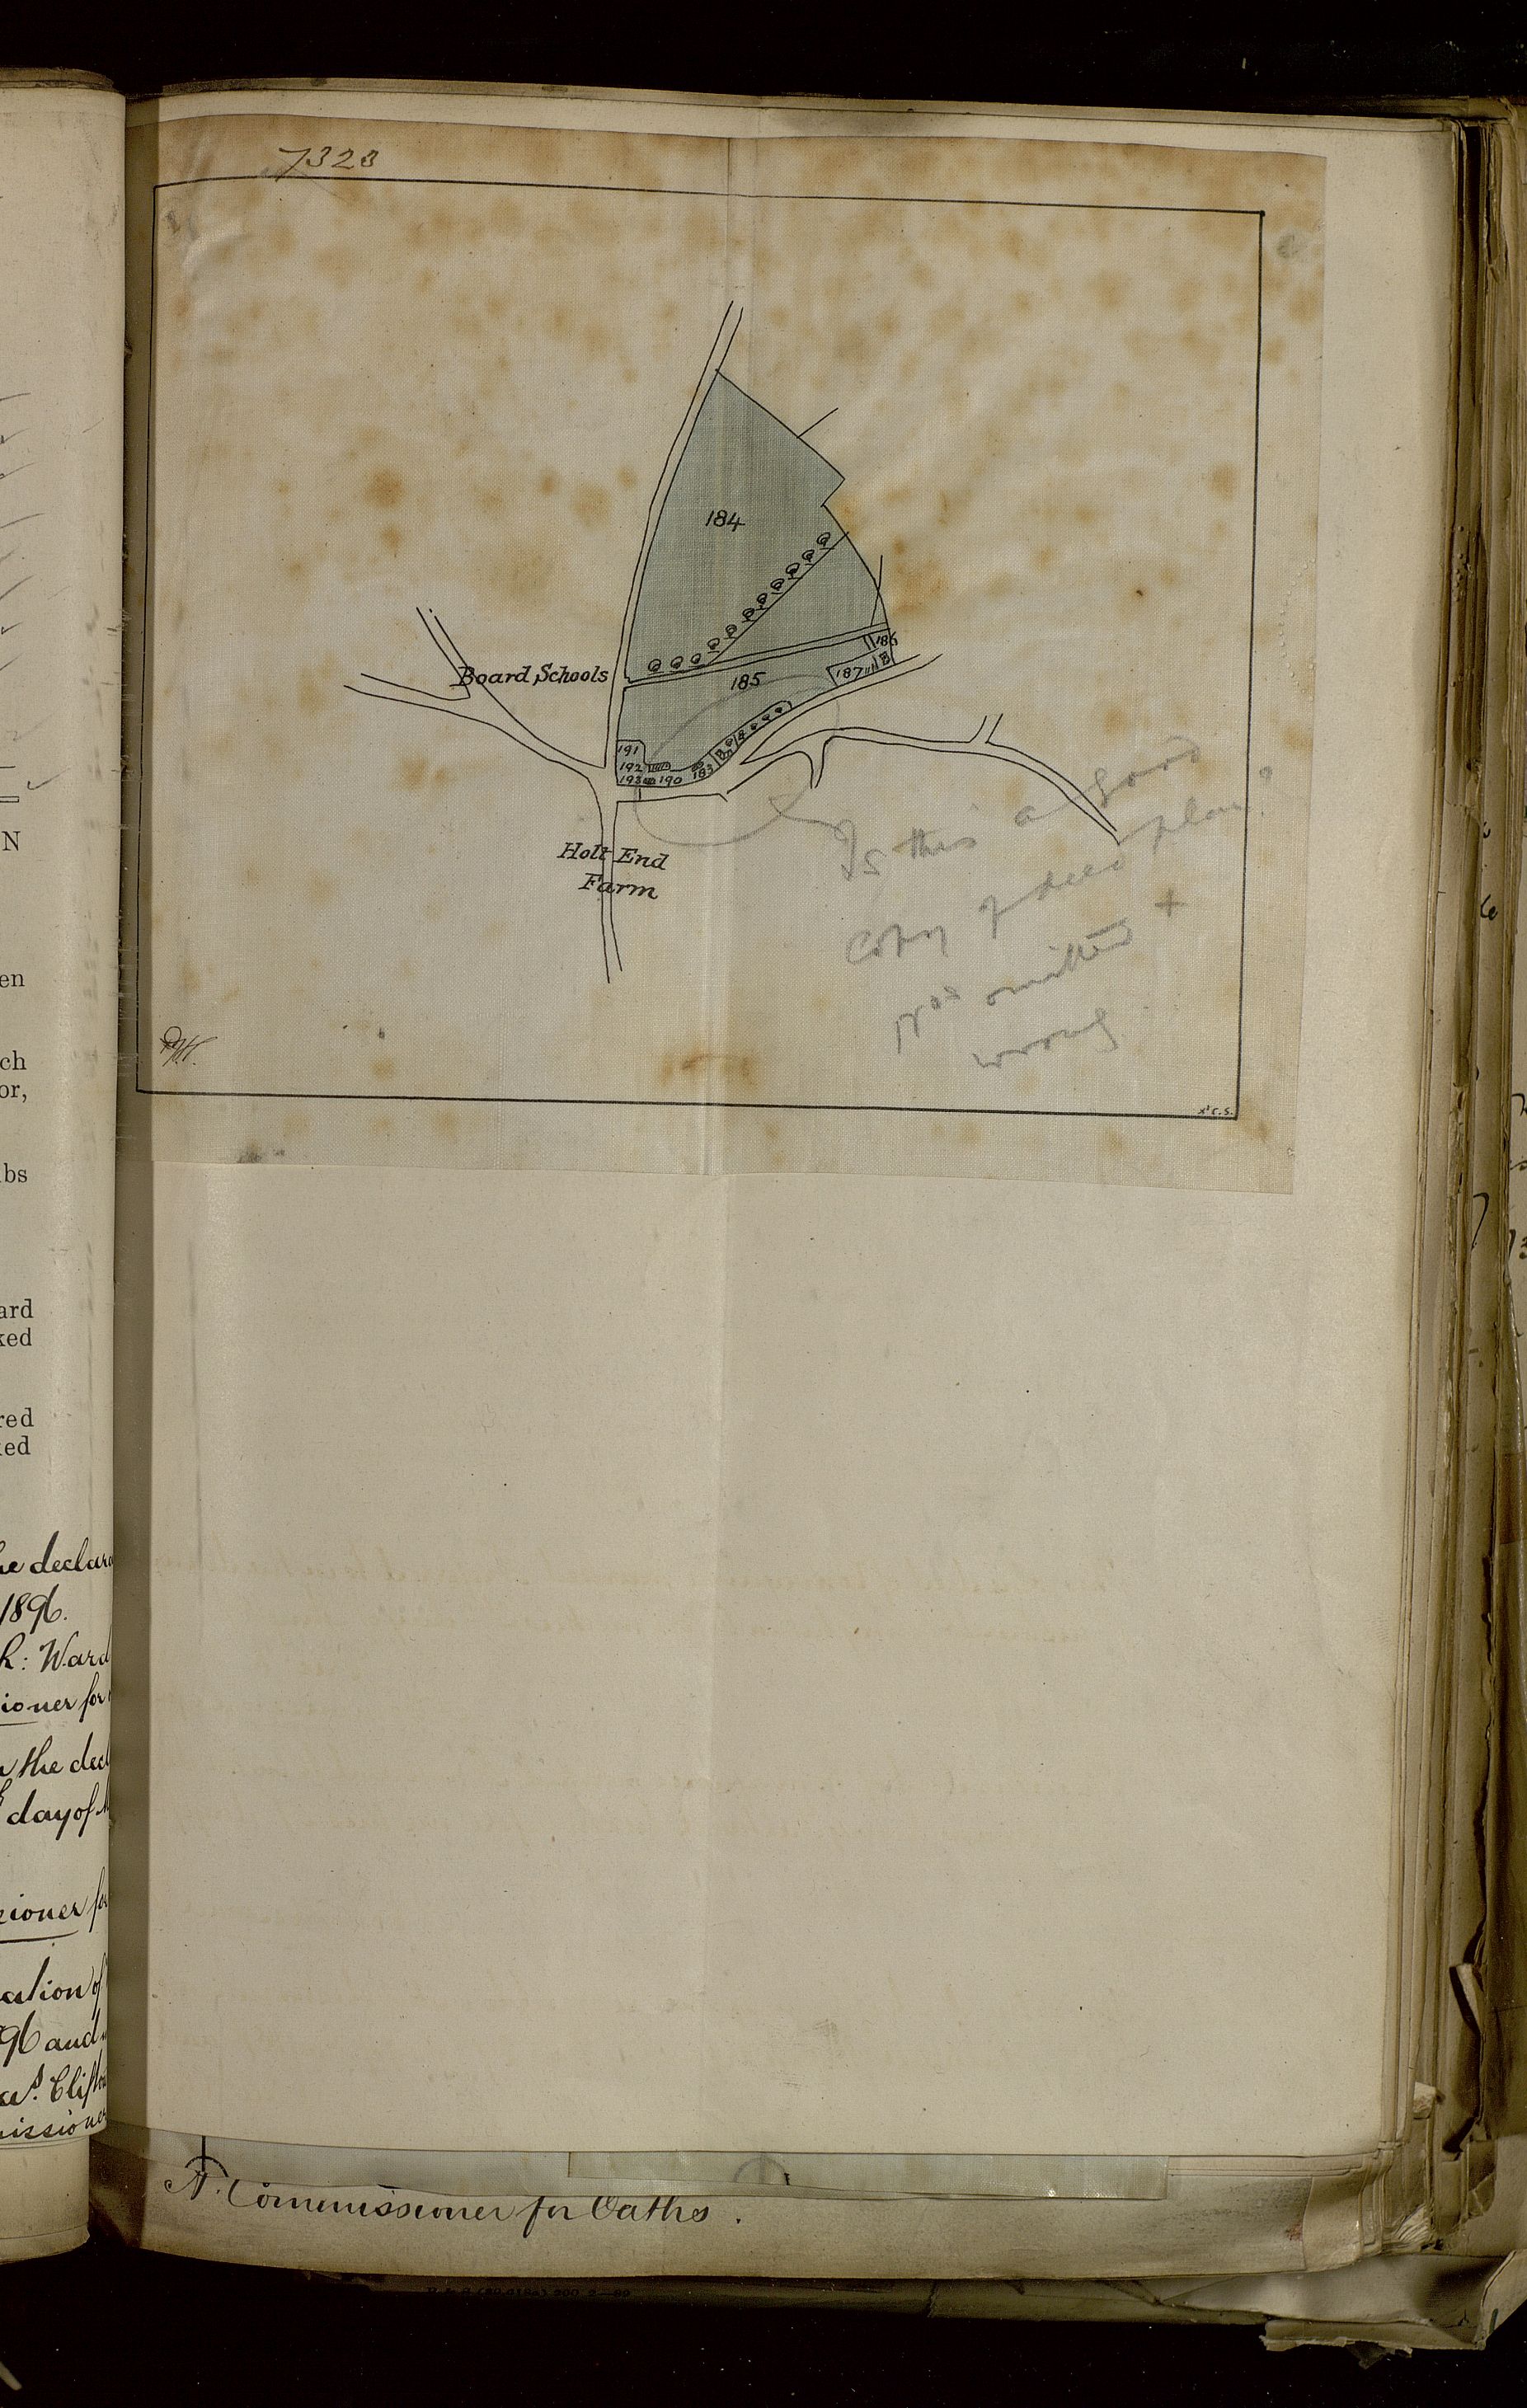 7323
184
Board Schools
186
187
B
185
191
192
193
190
183
Holt End
Farm
Is this a good
copy of deed plan?
Nos omitted +
wrong
N
en
ch
or,
bs
ard
ked
red
ked
he declara
1896.
R: Ward
ioner for
the decl
day of
sioner for
ation of
96 and
Clifton
missioner
A. Commissioner for Oaths.